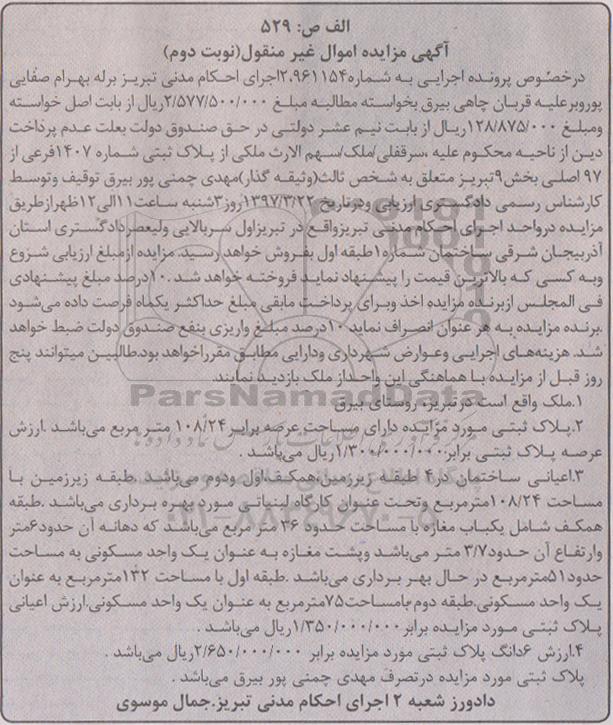 الف ص: ۵۲۹
آگهی مزایده اموال غیر منقول(نوبت دوم)
درخصوص پرونده اجرایی به شماره۲۰۹۶۱۱۵۴اجرای احکام مدنی تبریز برله بهرام صفایی
پوروبرعلیه قربان چاهی بیرق بخواسته مطالبه مبلغ ۲/۵۷۷/۵۰۰/۰۰۰ریال از بابت اصل خواسته
ومبلغ ۱۲۸/۸۷۵/۰۰۰ریال از بابت نیم عشر دولتی در حق صندوق دولت بعلت عدم پرداخت
دین از ناحیه محکوم علیه ،سرقفلی/ملک/سهم الارث ملکی از پلاک ثبتی شماره ۱۴۰۷فرعی از
۹۷ اصلی بخش۹تبریز متعلق به شخص ثالث(وثیقه گذار)مهدی چمنی پور بیرق توقیف وتوسط
کارشناس رسمی دادگستری ارزیابی ودرتاریخ ۱۳۹۷/۳/۲۲روز۳شنبه ساعت۱۱الی۱۲ظهرازطریق
مزایده درواحد اجرای احکام مدنی تبریزواقع در تبریزاول سربالایی ولیعصردادگستری استان
آذربیجان شرقی ساختمان شماره۱طبقه اول بفروش خواهد رسید. مزایده ازمبلغ ارزیابی شروع
وبه کسی که بالاترین قیمت را پیشنهاد نماید فروخته خواهد شد .۱۰درصد مبلغ پیشنهادی
فی المجلس ازبرنده مزایده اخذ وبرای پرداخت مابقی مبلغ حداکثر یکماه فرصت داده می‌شود
.برنده مزایده به هر عنوان انصراف نماید ۱۰درصد مبلغ واریزی بنفع صندوق دولت ضبط خواهد
شد. هزینه‌های اجرایی وعوارض شهرداری ودارایی مطابق مقرراخواهد بود.طالبین میتوانند پنج
روز قبل از مزایده با هماهنگی این واحداز ملک بازدید نمایند.
۱.ملک واقع است درتبریز، روستای بیرق
۲.پلاک ثبتی مورد مزایده دارای مساحت عرصه برابر۱۰۸/۲۴ متر مربع می‌باشد .ارزش
عرصه پلاک ثبتی برابر۱/۳۰۰/۰۰۰/۰۰۰ریال می‌باشد .
۳.اعیانی ساختمان در۴ طبقه زیرزمین،همکف،اول ودوم می‌باشد .طبقه زیرزمین با
مساحت ۱۰۸/۲۴مترمربع وتحت عنوان کارگاه لبنیاتی مورد بهره برداری می‌باشد .طبقه
همکف شامل یکباب مغازه با مساحت حدود ۴۶ متر مربع می‌باشد که دهانه آن حدود۶متر
وارتفاع آن حدود۳/۷ متر می‌باشد وپشت مغازه به عنوان یک واحد مسکونی به مساحت
حدود۵۱مترمربع در حال بهر برداری می‌باشد .طبقه اول با مساحت ۱۳۲مترمربع به عنوان
یک واحد مسکونی.طبقه دوم بامساحت۷۵مترمربع به عنوان یک واحد مسکونی.ارزش اعیانی
پلاک ثبتی مورد مزایده برابر ۱/۳۵۰/۰۰۰/۰۰۰ریال می‌باشد .
۴.ارزش ۶دانگ پلاک ثبتی مورد مزایده برابر ۲/۶۵۰/۰۰۰/۰۰۰ریال می‌باشد .
پلاک ثبتی مورد مزایده درتصرف مهدی چمنی پور بیرق می‌باشد .
دادورز شعبه ۲ اجرای احکام مدنی تبریز.جمال موسوی
ParsNamadData